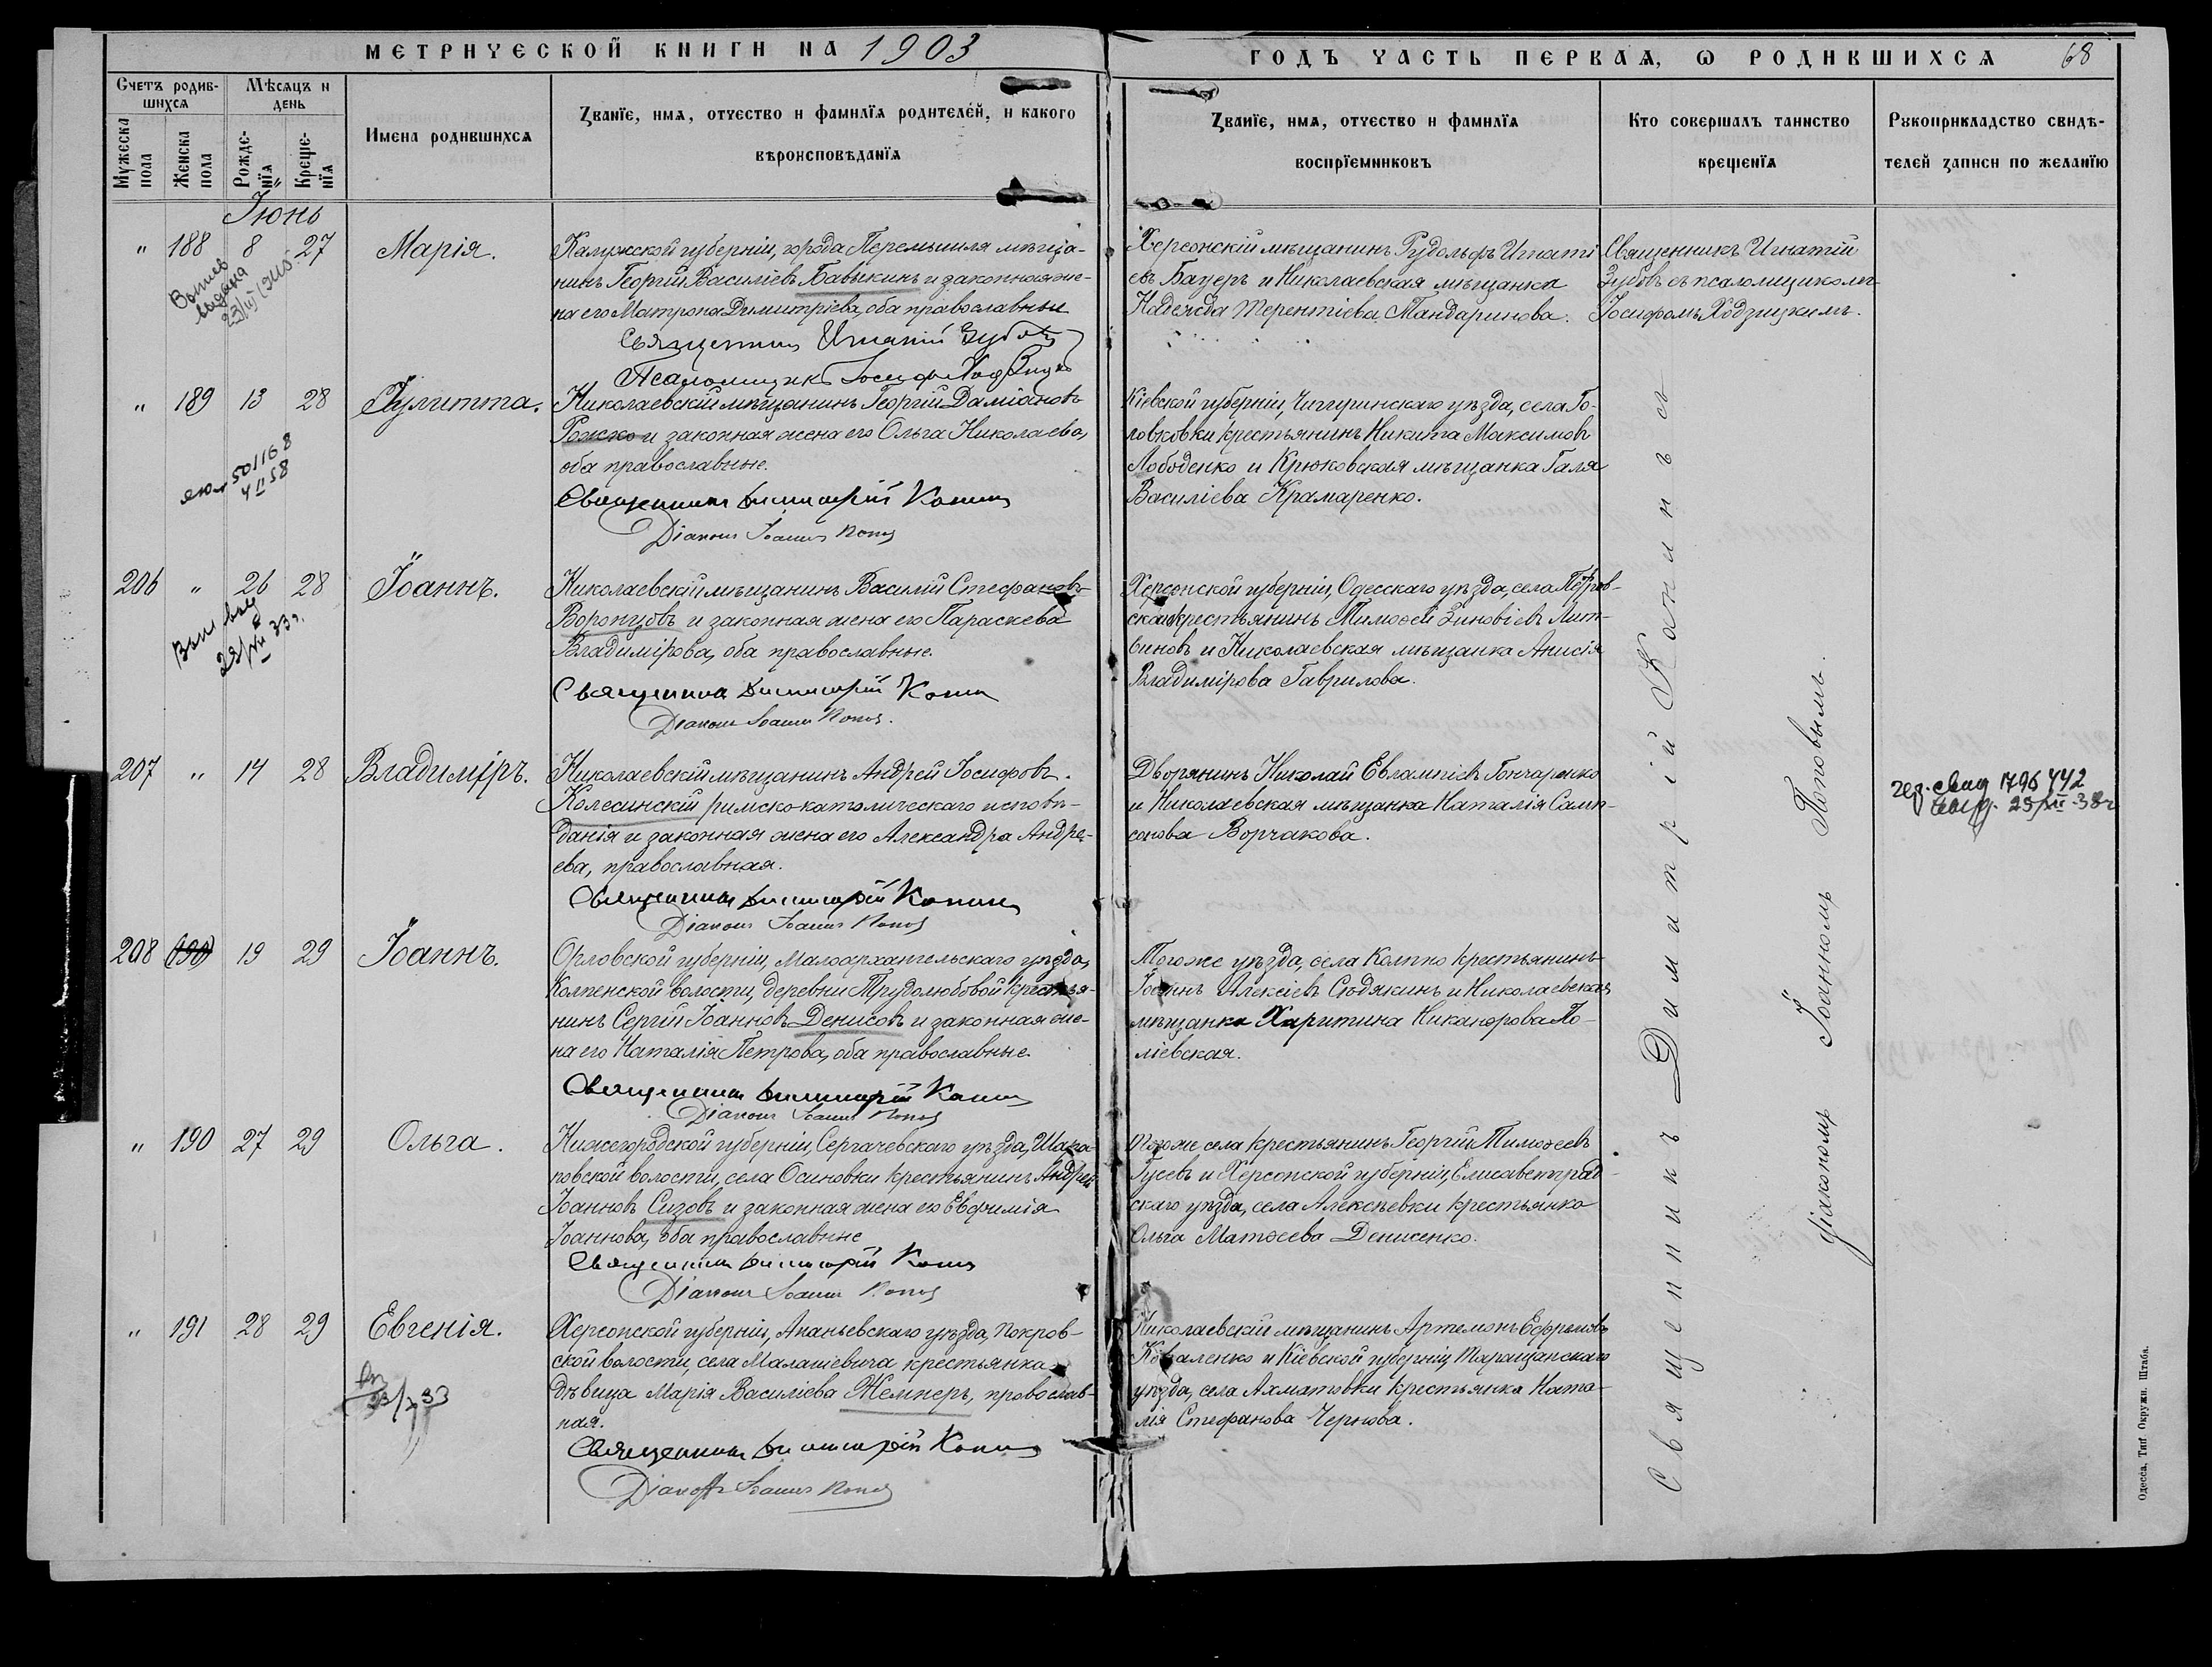 МЕТРИЧЕСКОЙ КНИГИ НА 1903
ГОДЪ ЧАСТЬ ПЕРВАЯ, Ѡ РОДИВШИХСЯ 68
Счетъ родив-
шихся
Мѣсяцъ и
день
Мужеска
пола
Женска
пола
Рожде-
нїя
Креще-
нїя
Имена родившихся
Званїе, имя, отчество и фамилїя родителей, и какого
вѣроисповѣданїя
Званїе, имя, отчество и фамилїя
воспрїемниковъ
Кто совершалъ таинство
крещенїя
Рукоприкладство свидѣ-
телей записи по желанїю
Іюнь
" 188 8 27 Марія.
Калужской губерніи, города Перемышля мѣща-
нинъ Георгій Василіевъ Бавыкинъ и законная же-
на его Матрона Димитріева, оба православные
Священникъ Игнатій Зубовъ
Псаломщикъ Іосифъ Ходзицкій
Херсонскій мѣщанинъ Рудольфъ Игнаті
евъ Бауеръ и Николаевская мѣщанка
Надежда Терентіева Мандаринова.
Священникъ Игнатій
Зубовъ съ псаломщикомъ
Іосифомъ Ходзицкимъ.
Выпись
выдана
" 189 13 28 Іулитта.
Николаевскій мѣщанинъ Георгій Даміановъ
Рожко и законная жена его Ольга Николаева,
оба православные.
Священникъ Димитрій Канинъ
Діаконъ Іоаннъ Поповъ
Кіевской губерніи, Чигиринскаго уѣзда, села Го-
ловковки крестьянинъ Никита Максимовъ
Лободенко и Крюковская мѣщанка Галя
Василіева Крамаренко.
501168
4 II 58
206 " 26 28 Іоаннъ.
Николаевскій мѣщанинъ Василій Стефановъ
Воронцовъ и законная жена его Параскева
Владимірова, оба православные.
Священникъ Димитрій Канинъ
Діаконъ Іоаннъ Поповъ.
Херсонской губерніи, Одесскаго уѣзда, села Петров-
скаго крестьянинъ Тимоѳей Зиновіевъ Лит-
виновъ и Николаевская мѣщанка Анисія
Владимірова Гаврилова.
207 " 14 28 Владиміръ.
Николаевскій мѣщанинъ Андрей Іосифовъ
Колесинскій римско-католическаго исповѣ-
данія и законная жена его Александра Андре-
ева, православная.
Священникъ Димитрій Канинъ
Діаконъ Іоаннъ Поповъ
Дворянинъ Николай Евлампіевъ Гончаренко
и Николаевская мѣщанка Наталія Самп-
сонова Ворчакова.
свид 1796442
208 (190) 19 29 Іоаннъ.
Орловской губерніи, Малоархангельскаго уѣзда,
Колпенской волости, деревни Трудолюбовой крестья-
нинъ Сергій Іоанновъ Денисовъ и законная же-
на его Наталія Петрова, оба православные.
Священникъ Димитрій Канинъ
Діаконъ Іоаннъ Поповъ
Того же уѣзда, села Колпно крестьянинъ
Іоаннъ Алексіевъ Сюдякинъ и Николаевская
мѣщанка Харитина Никанорова По-
ліевская.
" 190 27 29 Ольга.
Нижегородской губерніи, Сергачевскаго уѣзда, Шара-
повской волости, села Осиновки крестьянинъ Андрей
Іоанновъ Сизовъ и законная жена его Евфимія
Іоаннова, оба православные
Священникъ Димитрій Канинъ
Діаконъ Іоаннъ Поповъ
Того же села крестьянинъ Георгій Тимоѳеевъ
Гусевъ и Херсонской губерніи, Елисаветград-
скаго уѣзда, села Алексѣевки крестьянка
Ольга Матѳеева Денисенко.
" 191 28 29 Евгенія.
Херсонской губерніи, Ананьевскаго уѣзда, Покров-
ской волости, села Малашевича крестьянка
дѣвица Марія Василіева Жемперъ, православ-
ная.
Священникъ Димитрій Канинъ
Діаконъ Іоаннъ Поповъ
Николаевскій мѣщанинъ Артемонъ Ефремовъ
Коваленко и Кіевской губерніи Таращанскаго
уѣзда, села Ахматовки крестьянка Ната-
лія Стефанова Чернова.
Священникъ Димитрій Канинъ съ
діакономъ Іоанномъ Поповымъ.
Одесса, Тип Окружн. Штаба.